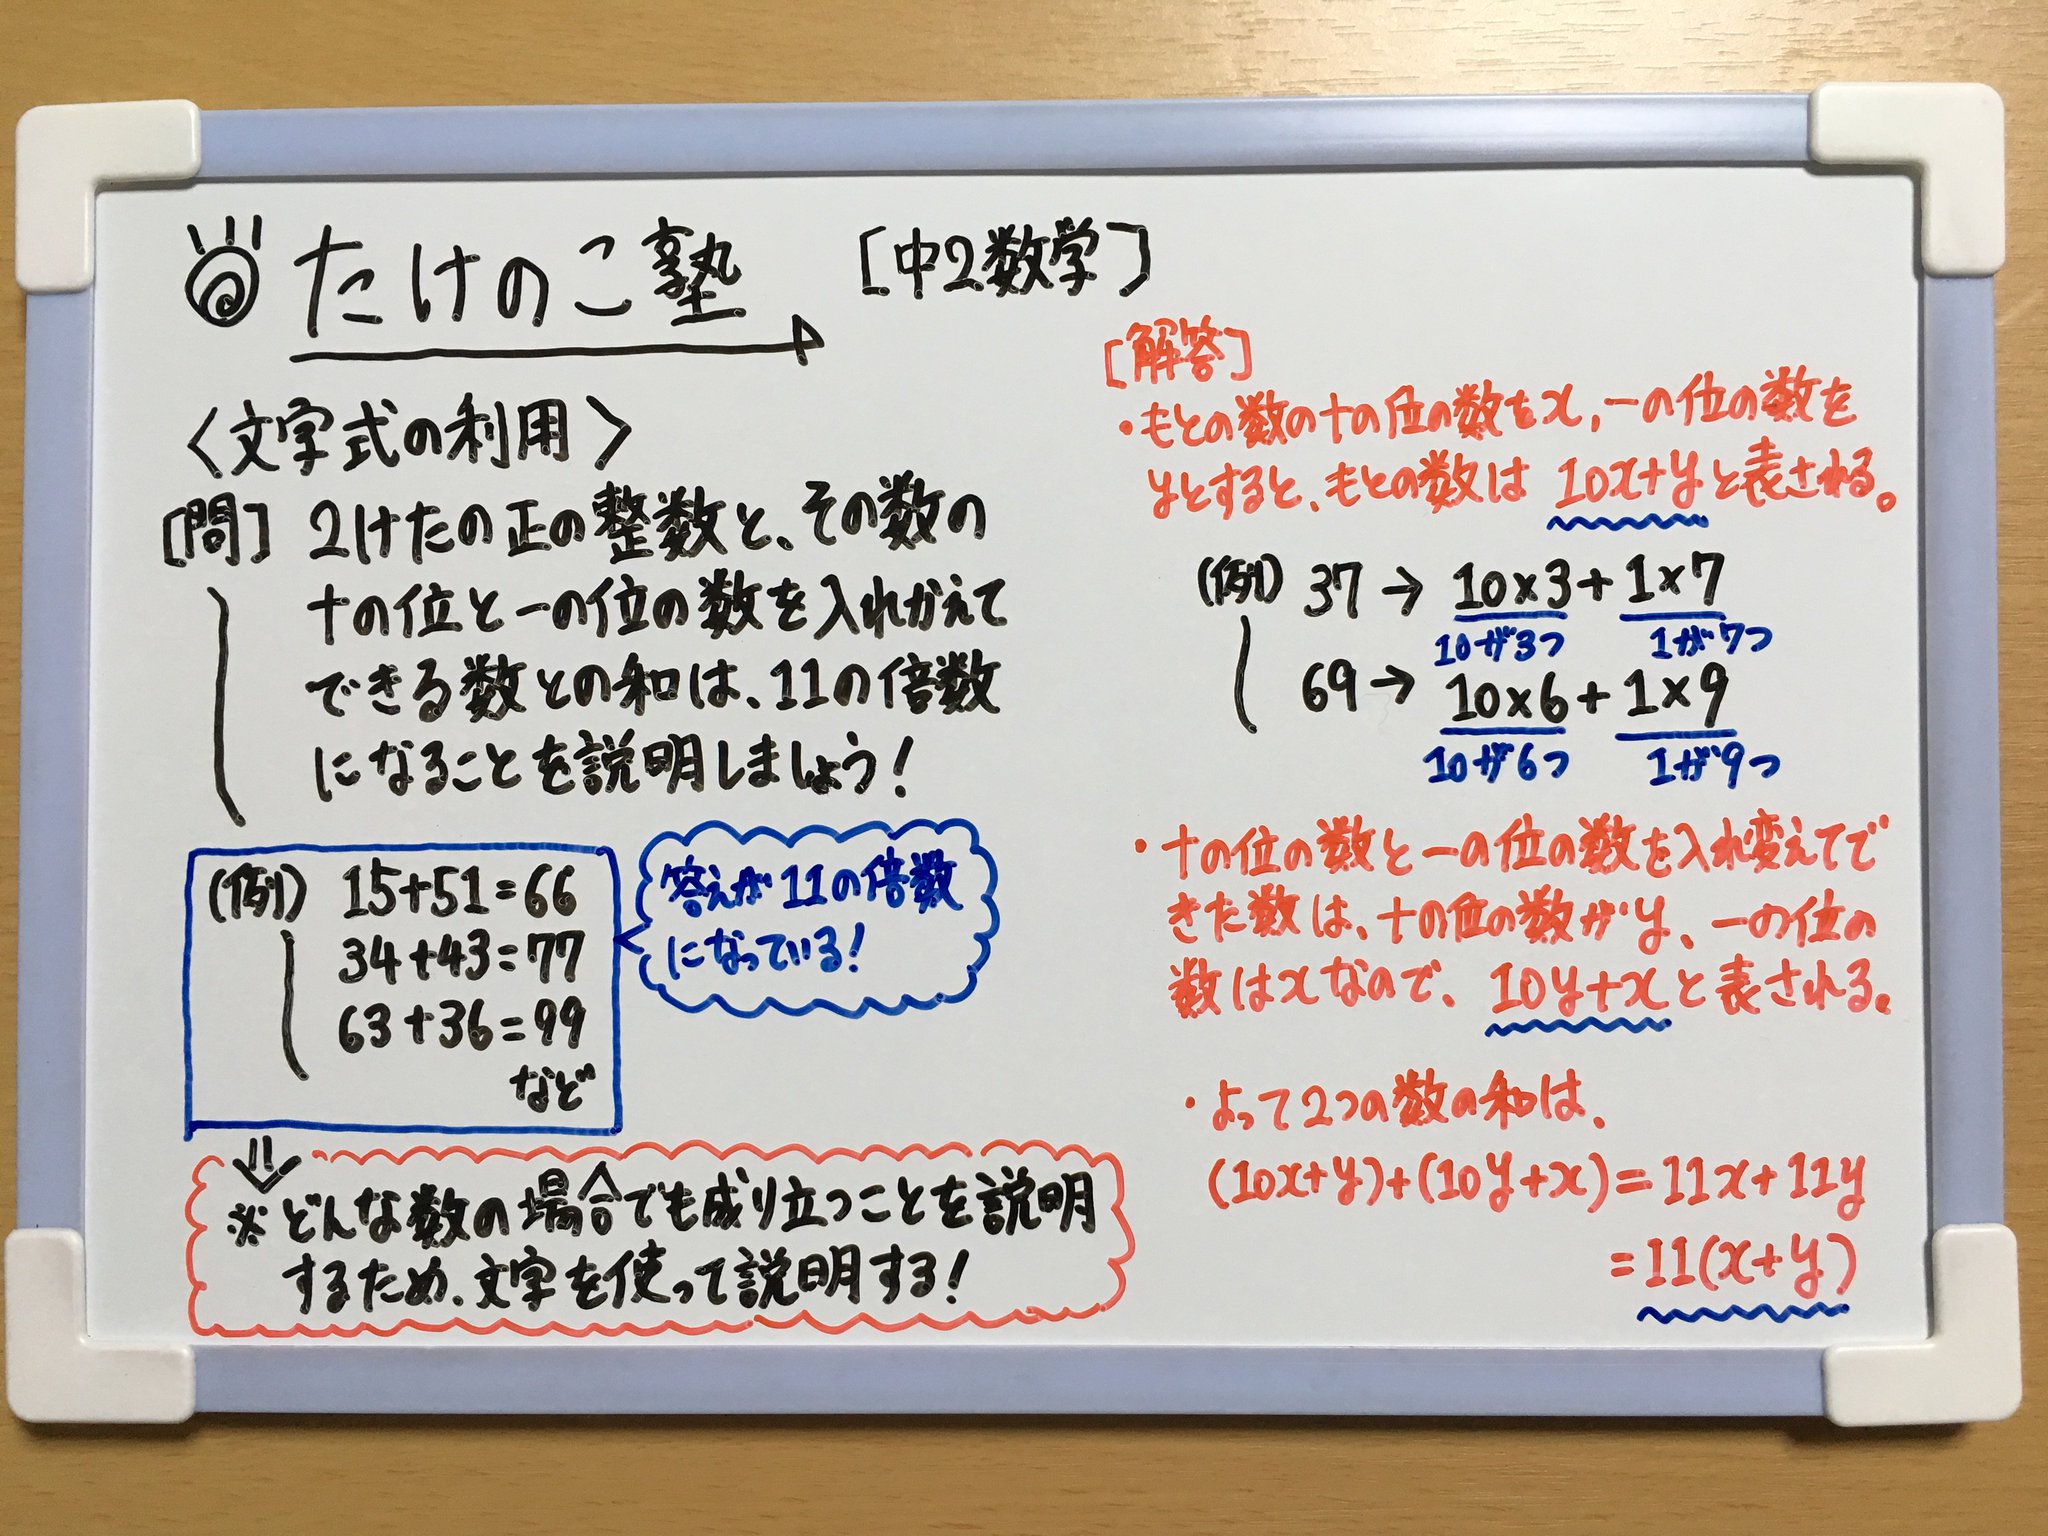 たけのこ塾
[中2数学]
〈文字式の利用〉
[問] 2けたの正の整数と、その数の
十の位と一の位の数を入れかえて
できる数との和は、11の倍数
になることを説明しましょう!
(例) 15+51=66
34+43=77
63+36=99
など
答えが11の倍数
になっている!
※どんな数の場合でも成り立つことを説明
するため、文字を使って説明する!
[解答]
・もとの数の十の位の数をx,一の位の数を
yとすると、もとの数は 10x+yと表される。
(例) 37→10×3+1×7
10が3つ 1が7つ
69→10×6+1×9
10が6つ 1が9つ
・十の位の数と一の位の数を入れ変えてで
きた数は、十の位の数がy、一の位の
数はxなので、10y+xと表される。
・よって2つの数の和は、
(10x+y)+(10y+x)=11x+11y
=11(x+y)